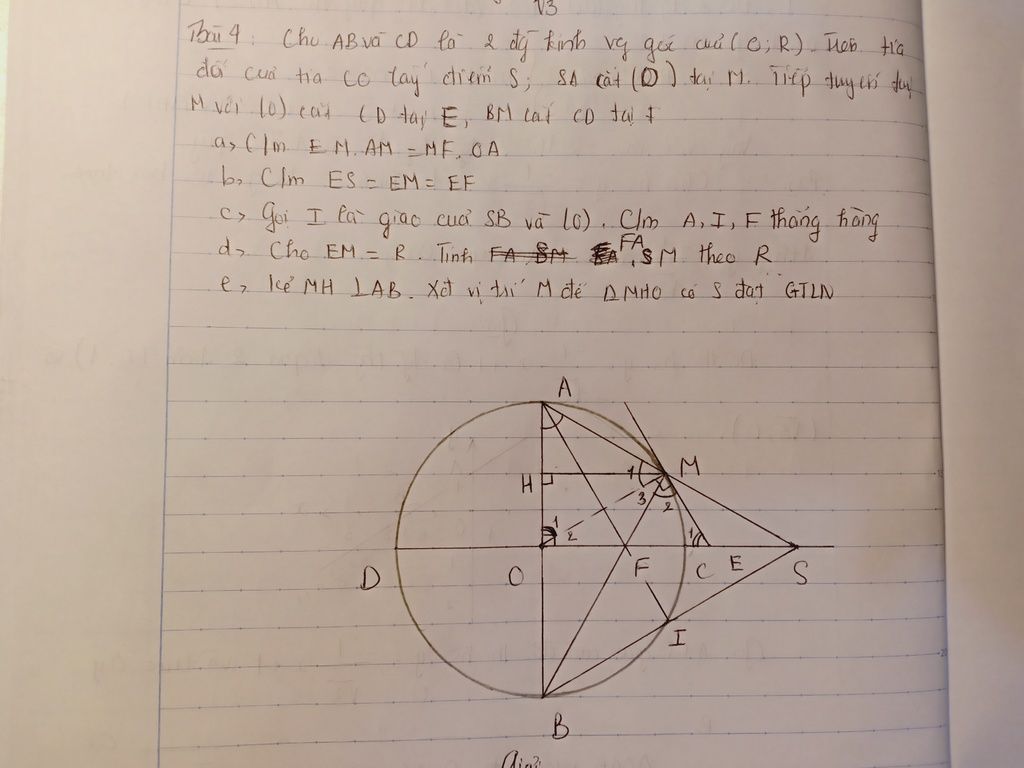 √3
Bài 4: Cho AB và CD là 2 đg kính vg góc của (O; R). Trên tia
đối của tia CO lấy điểm S; SA cắt (O) tại M. Tiếp tuyến tại
M với (O) cắt CD tại E, BM cắt CD tại F
a, C/m EM. AM = MF. OA
b, C/m ES = EM = EF
c, Gọi I là giao của SB và (O). C/m A, I, F thẳng hàng
d, Cho EM = R. Tính FA, SM theo R
e, Kẻ MH ⊥ AB. Xét vị trí M để ΔMHO có S đạt GTLN
A
H
1
M
3
2
1
2
1
D
O
F
C
E
S
I
B
Giải